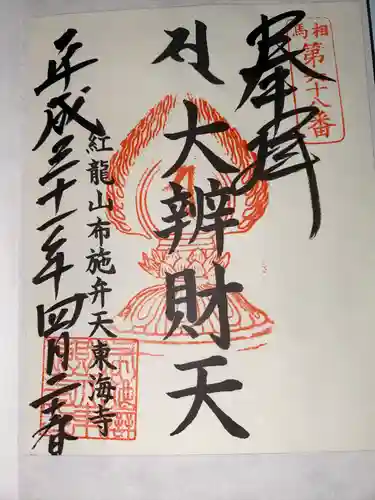 相馬
第六十八番
奉拝
大辨財天
紅龍山布施弁天東海寺
平成三十一年四月二十日